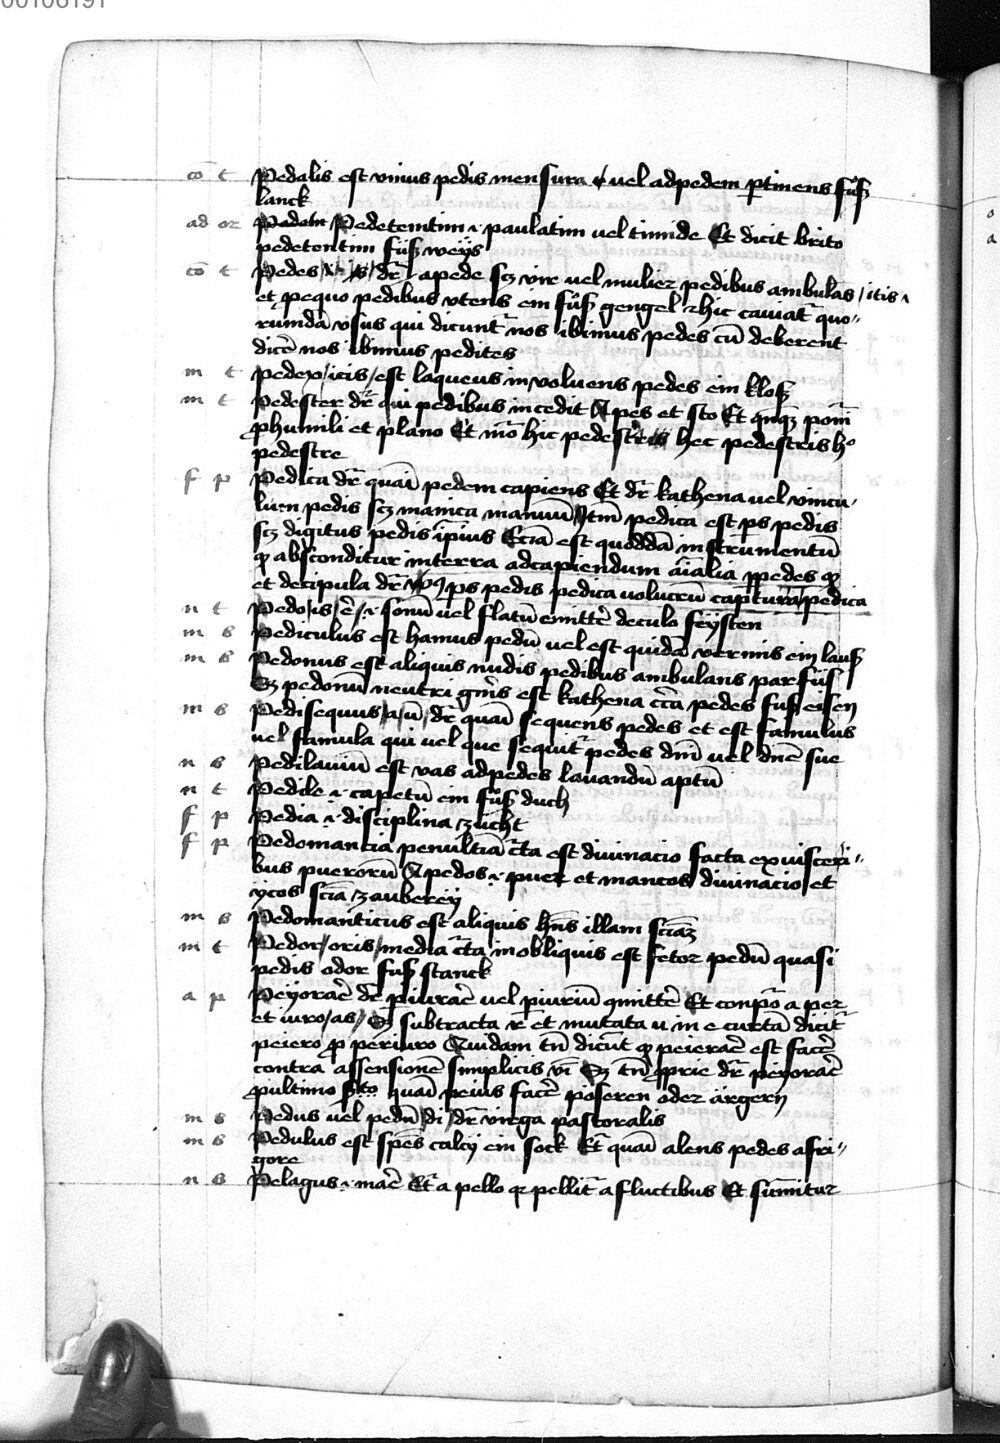 00106191
cō t Pedalis est vnius pedis mensura vel ad pedem ꝑtinens fuͤß
lanck
ad or Pedetemtim .i. paulatim vel timide Et dicit brito
pedetentim fuͤß weÿs
cō t Pedes dr̄ a pede sꝫ vir vel mulier pedibus ambulās / itis
et ꝑ equo pedibus vtens ein fuͤß gengel hic caviat͛ quo〃
rundā vsus qui dicunt͛ nos ibimus pedes cū deberent
dicē nos ibimus pedites
m t Pedex / icis / est laqueus involuens pedes ein kloß
m t Pedester dr̄ qui pedibus incedit A pes et sto Et qn̄qꝫ ponit͛
ꝓ humili et plano Et īnō hic pedestris hec pedestris hͦ
pedestre
f p Pedica dr̄ quasi pedem capiens Et dr̄ kathena vel vincu〃
lum pedis sꝫ manica manuū Itm̄ pedica est ꝑs pedis
sꝫ digitus pedis ip̄ius Eciā est quoddā instrumentū
ꝙ absconditur in terra ad capiendum aīalia ꝑ pedes ꝙ
et decipula dr̄ ꝑs pedis pedica volucrū captura pedica
n t Pedo / is / ē / .i. sonū vel flatū emittē de culo feÿsten
m s Pediculus est hamus pedū vel est quidā vermis ein lauß
m s Pedonus est aliquis nudis pedibus ambulans parfuͤß
Sꝫ pedonū neutri gn̄is est kathena cͬca pedes fuß eisen
m s Pedisequus / a / ū / dr̄ quasi sequens pedes et est famulus
vel famula qui vel que sequit͛ pedes dn̄i vel dn̄e sue
n s Pedilauiū est vas ad pedes lavandū aptū
n t Pedile .i. capetū ein fuͤß duch
f p Pedia .i. disciplina zucht
f p Pedomancia penultīa cͬta est diuinacio facta ex visceri〃
bus puerorū A pedos .i. puer et mancos diuinacio et
ÿcos scīa zaubereÿ
m s Pedomanticus est aliquis hn̄s illam scīaꝫ
m t Pedor / oris / media cͬta in obliquis est fetor pedū quasi
pedis odor fuß stanck
a p Peÿorarē dr̄ ꝑiurarē vel ꝑiuriū ꝯmittē Et conpōͬ a per
et iuro / as / Sꝫ subtracta r̄ et mutata u in e curtā dicit͛
peiero ꝓ periuro Quidam tn̄ dicūt ꝙ peierarē est facē
contra assensionē simplicis vi Sꝫ tn̄ ꝓprie dr̄ peÿorarē
quasi peius facē pöseren oder ärgern
m s Pedus vel pedū / di / dr̄ virga pastoralis
m s Pedulus est spēs calcij ein sock Et͛ quasi alens pedes a fri〃
gore
n s Pelagus .i. marē Et͛ a pello qͬ pellit͛ a fluctibus Et sumitur